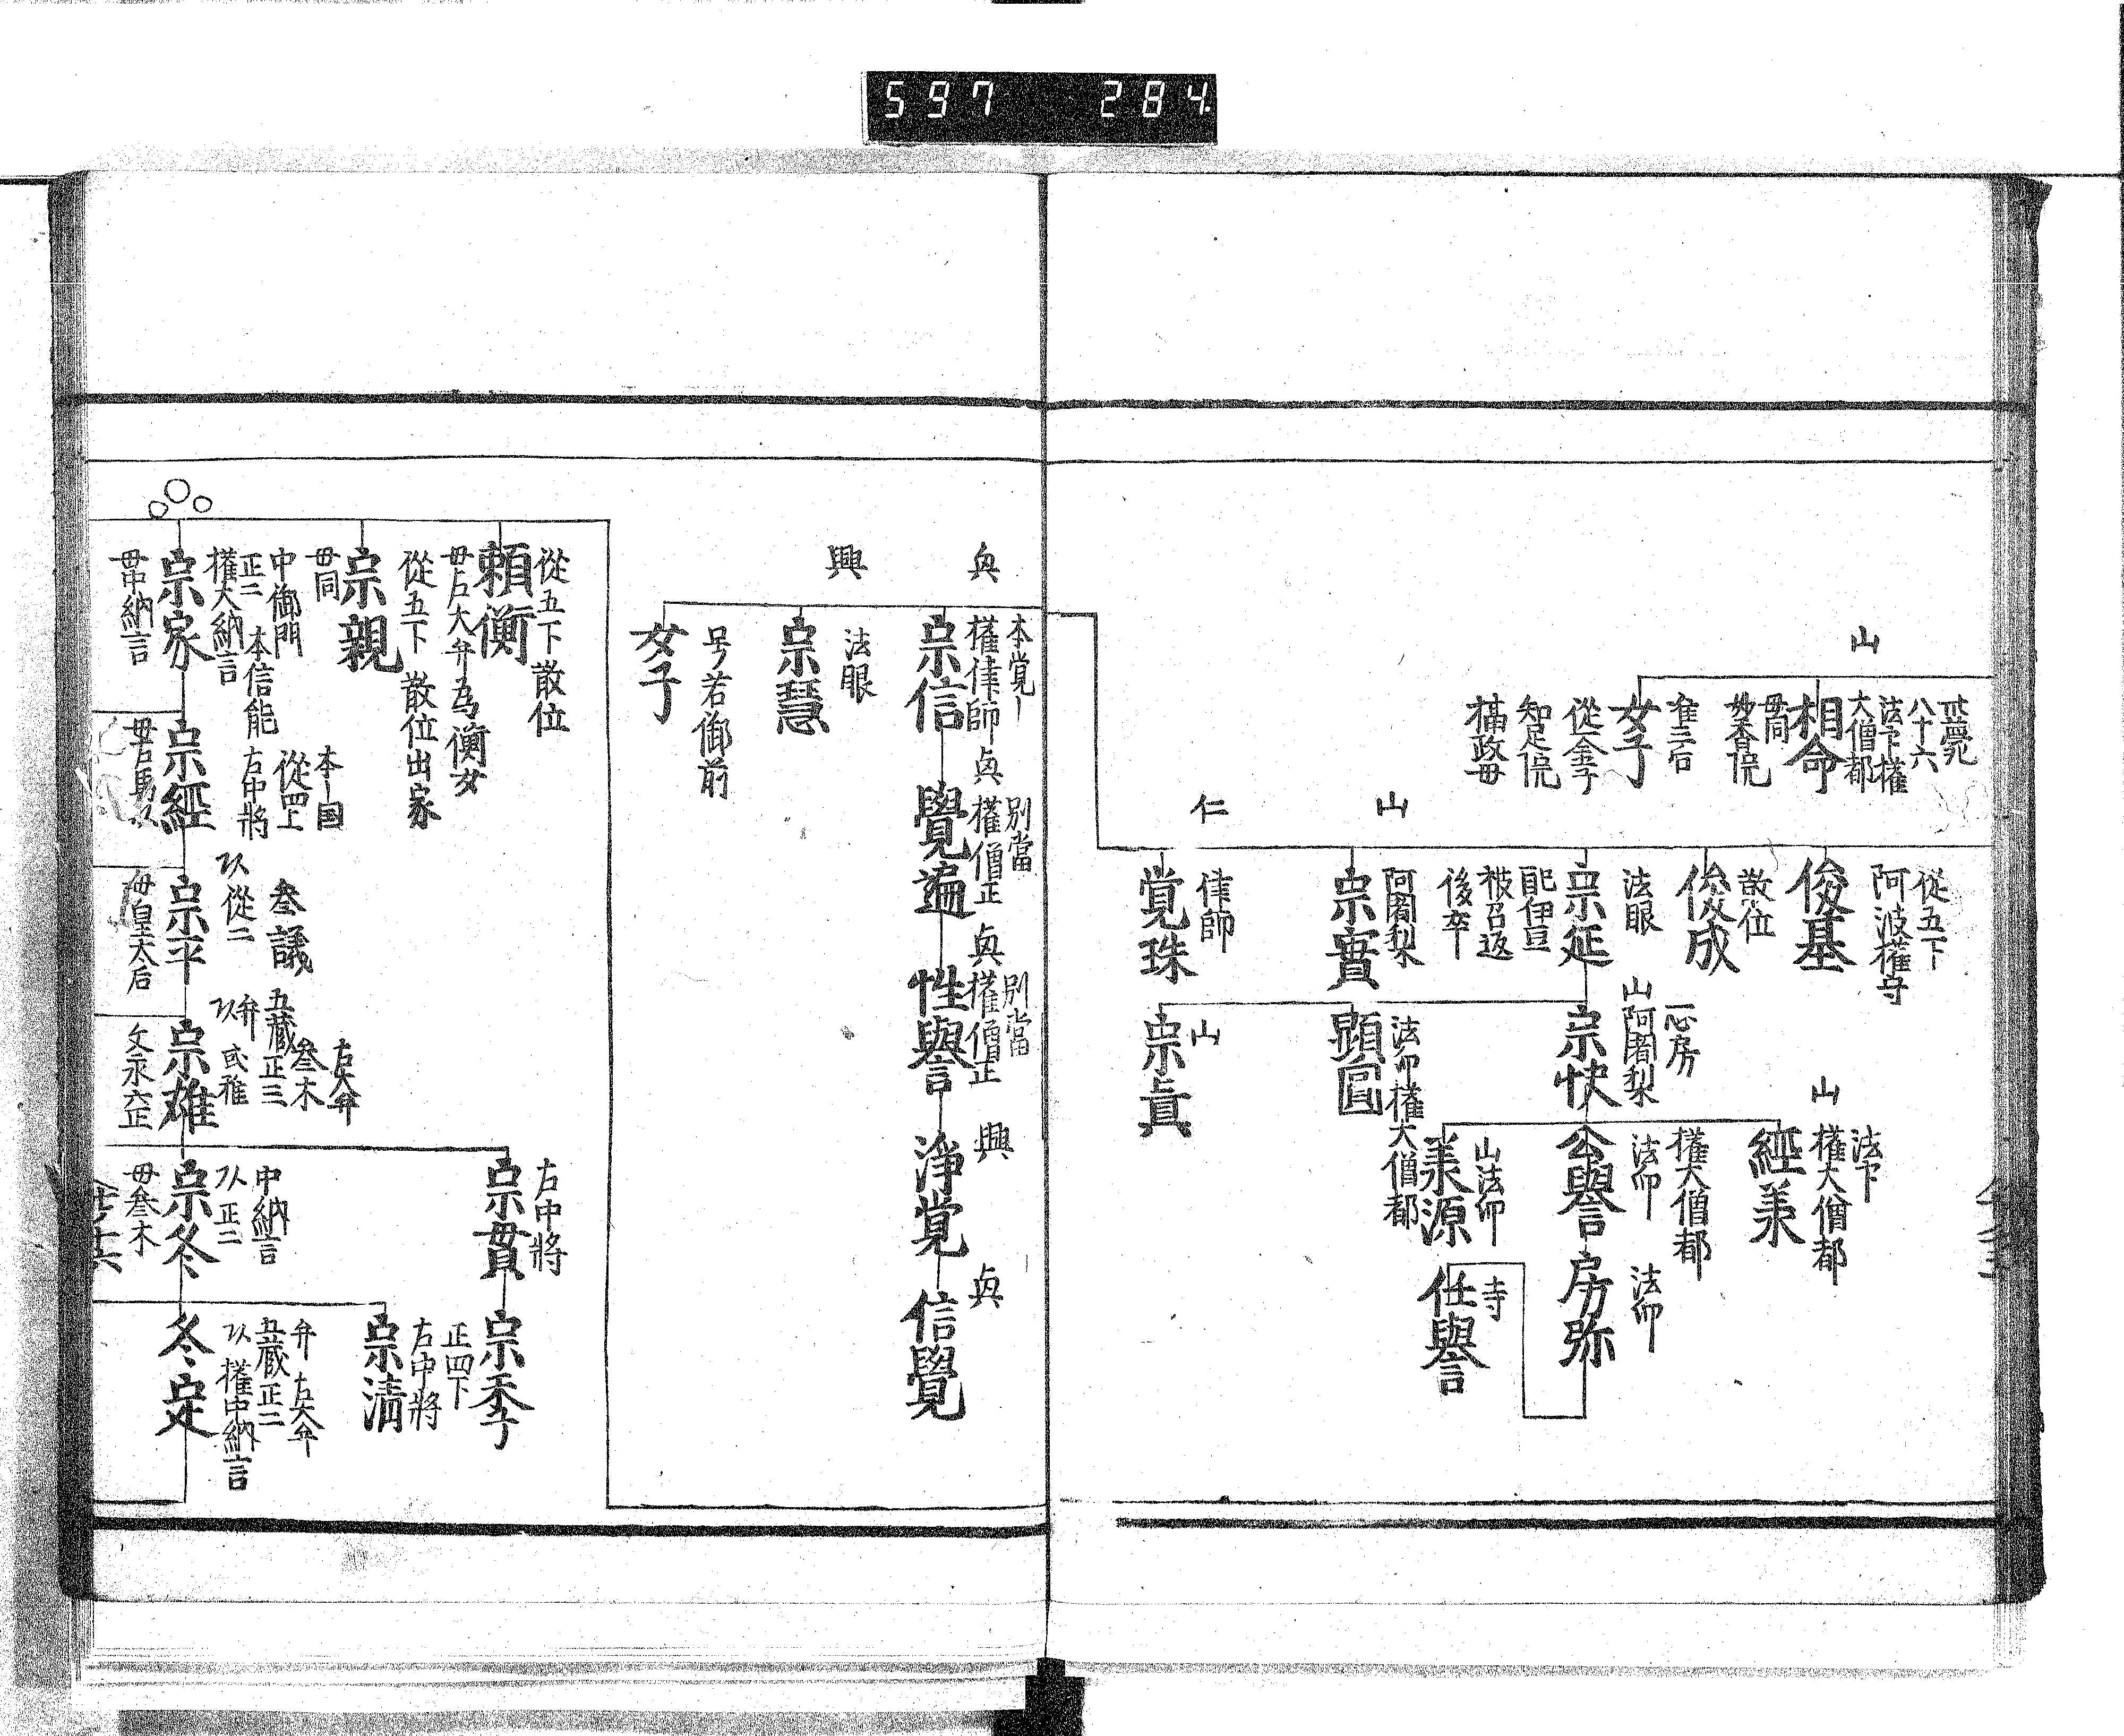 597 284
山
八十六
法下権
大僧都
相命
母同
妙香院
准三后
女子
從一全子
知足院
摂政母
從五下
阿波権守
俊基
散位
俊成
法眼
宗延
配伊豆
被召返
後卒
山
阿闍梨
宗實
仁
律師
覚珠
一心房
山阿闍梨
宗快
法印権大僧都
顕圓
山
宗眞
山
法下
権大僧都
經兼
権大僧都
法印
公譽
山法印
兼源
法印
房弥
寺
任譽
本覚
権律師
宗信
別當
権僧正
覺遍
別當
権僧正
性譽
興
浄覚
信覺
興
法眼
宗慧
号若御前
女子
從五下散位
頼衡
母右大弁為衡女
從五下 散位出家
宗親
母同
中御門
正二 本信能
権大納言
宗家
母中納言
本国
從四上
右中将
宗經
母右馬
参議
從二
宗平
母皇太后
右大弁
参木
五蔵正三
弁 或雅
宗雄
文永六正
右中将
宗貫
中納言
正二
宗冬
母参木
宗季
正四下
右中将
宗清
弁 右大弁
五蔵正二
権中納言
冬定